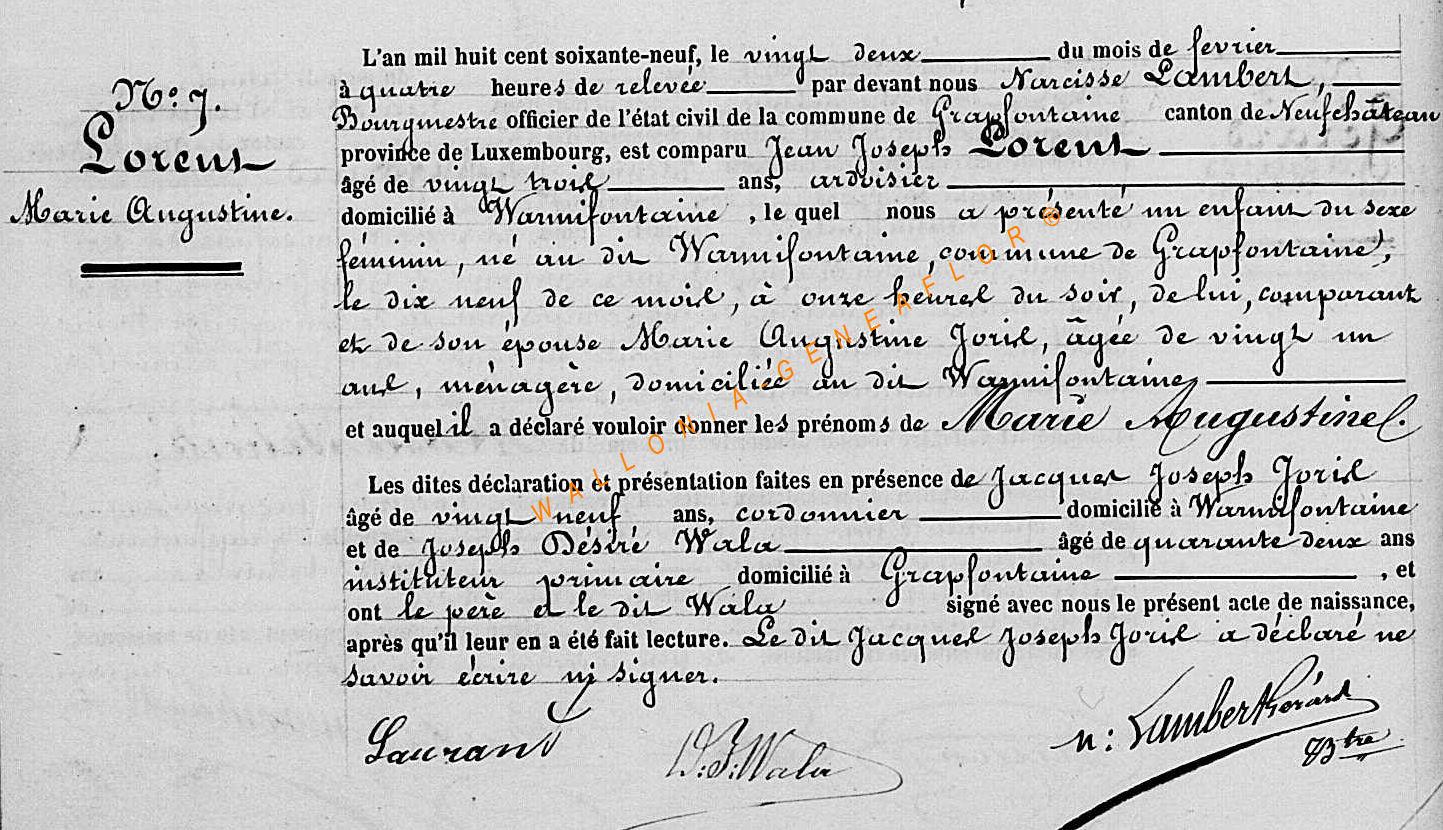 N° 7.
Lorent
Marie Augustine.
L'an mil huit cent soixante-neuf, le vingt deux du mois de fevrier
à quatre heures de relevée par devant nous Narcisse Lambert,
Bourgmestre officier de l'état civil de la commune de Grapfontaine canton de Neufchâteau
province de Luxembourg, est comparu Jean Joseph Lorent
âgé de vingt trois ans, ardoisier
domicilié à Warmifontaine, le quel nous a présenté un enfant du sexe
féminin, né au dit Warmifontaine, commune de Grapfontaine,
le dix neuf de ce mois, à onze heures du soir, de lui, comparant
et de son épouse Marie Augustine Joris, âgée de vingt un
ans, ménagère, domiciliée au dit Warmifontaine
et auquel il a déclaré vouloir donner les prénoms de Marie Augustine.
Les dites déclaration et présentation faites en présence de Jacques Joseph Joris
âgé de vingt neuf ans, cordonnier domicilié à Warmifontaine
et de Joseph Désiré Wala âgé de quarante deux ans
instituteur primaire domicilié à Grapfontaine, et
ont le père et le dit Wala signé avec nous le présent acte de naissance,
après qu'il leur en a été fait lecture. Le dit Jacques Joseph Joris a déclaré ne
savoir écrire ni signer.
Laurant D. J. Wala n: Lambert Gérard
Btre
WALLONIA-GENEAFLOR ®